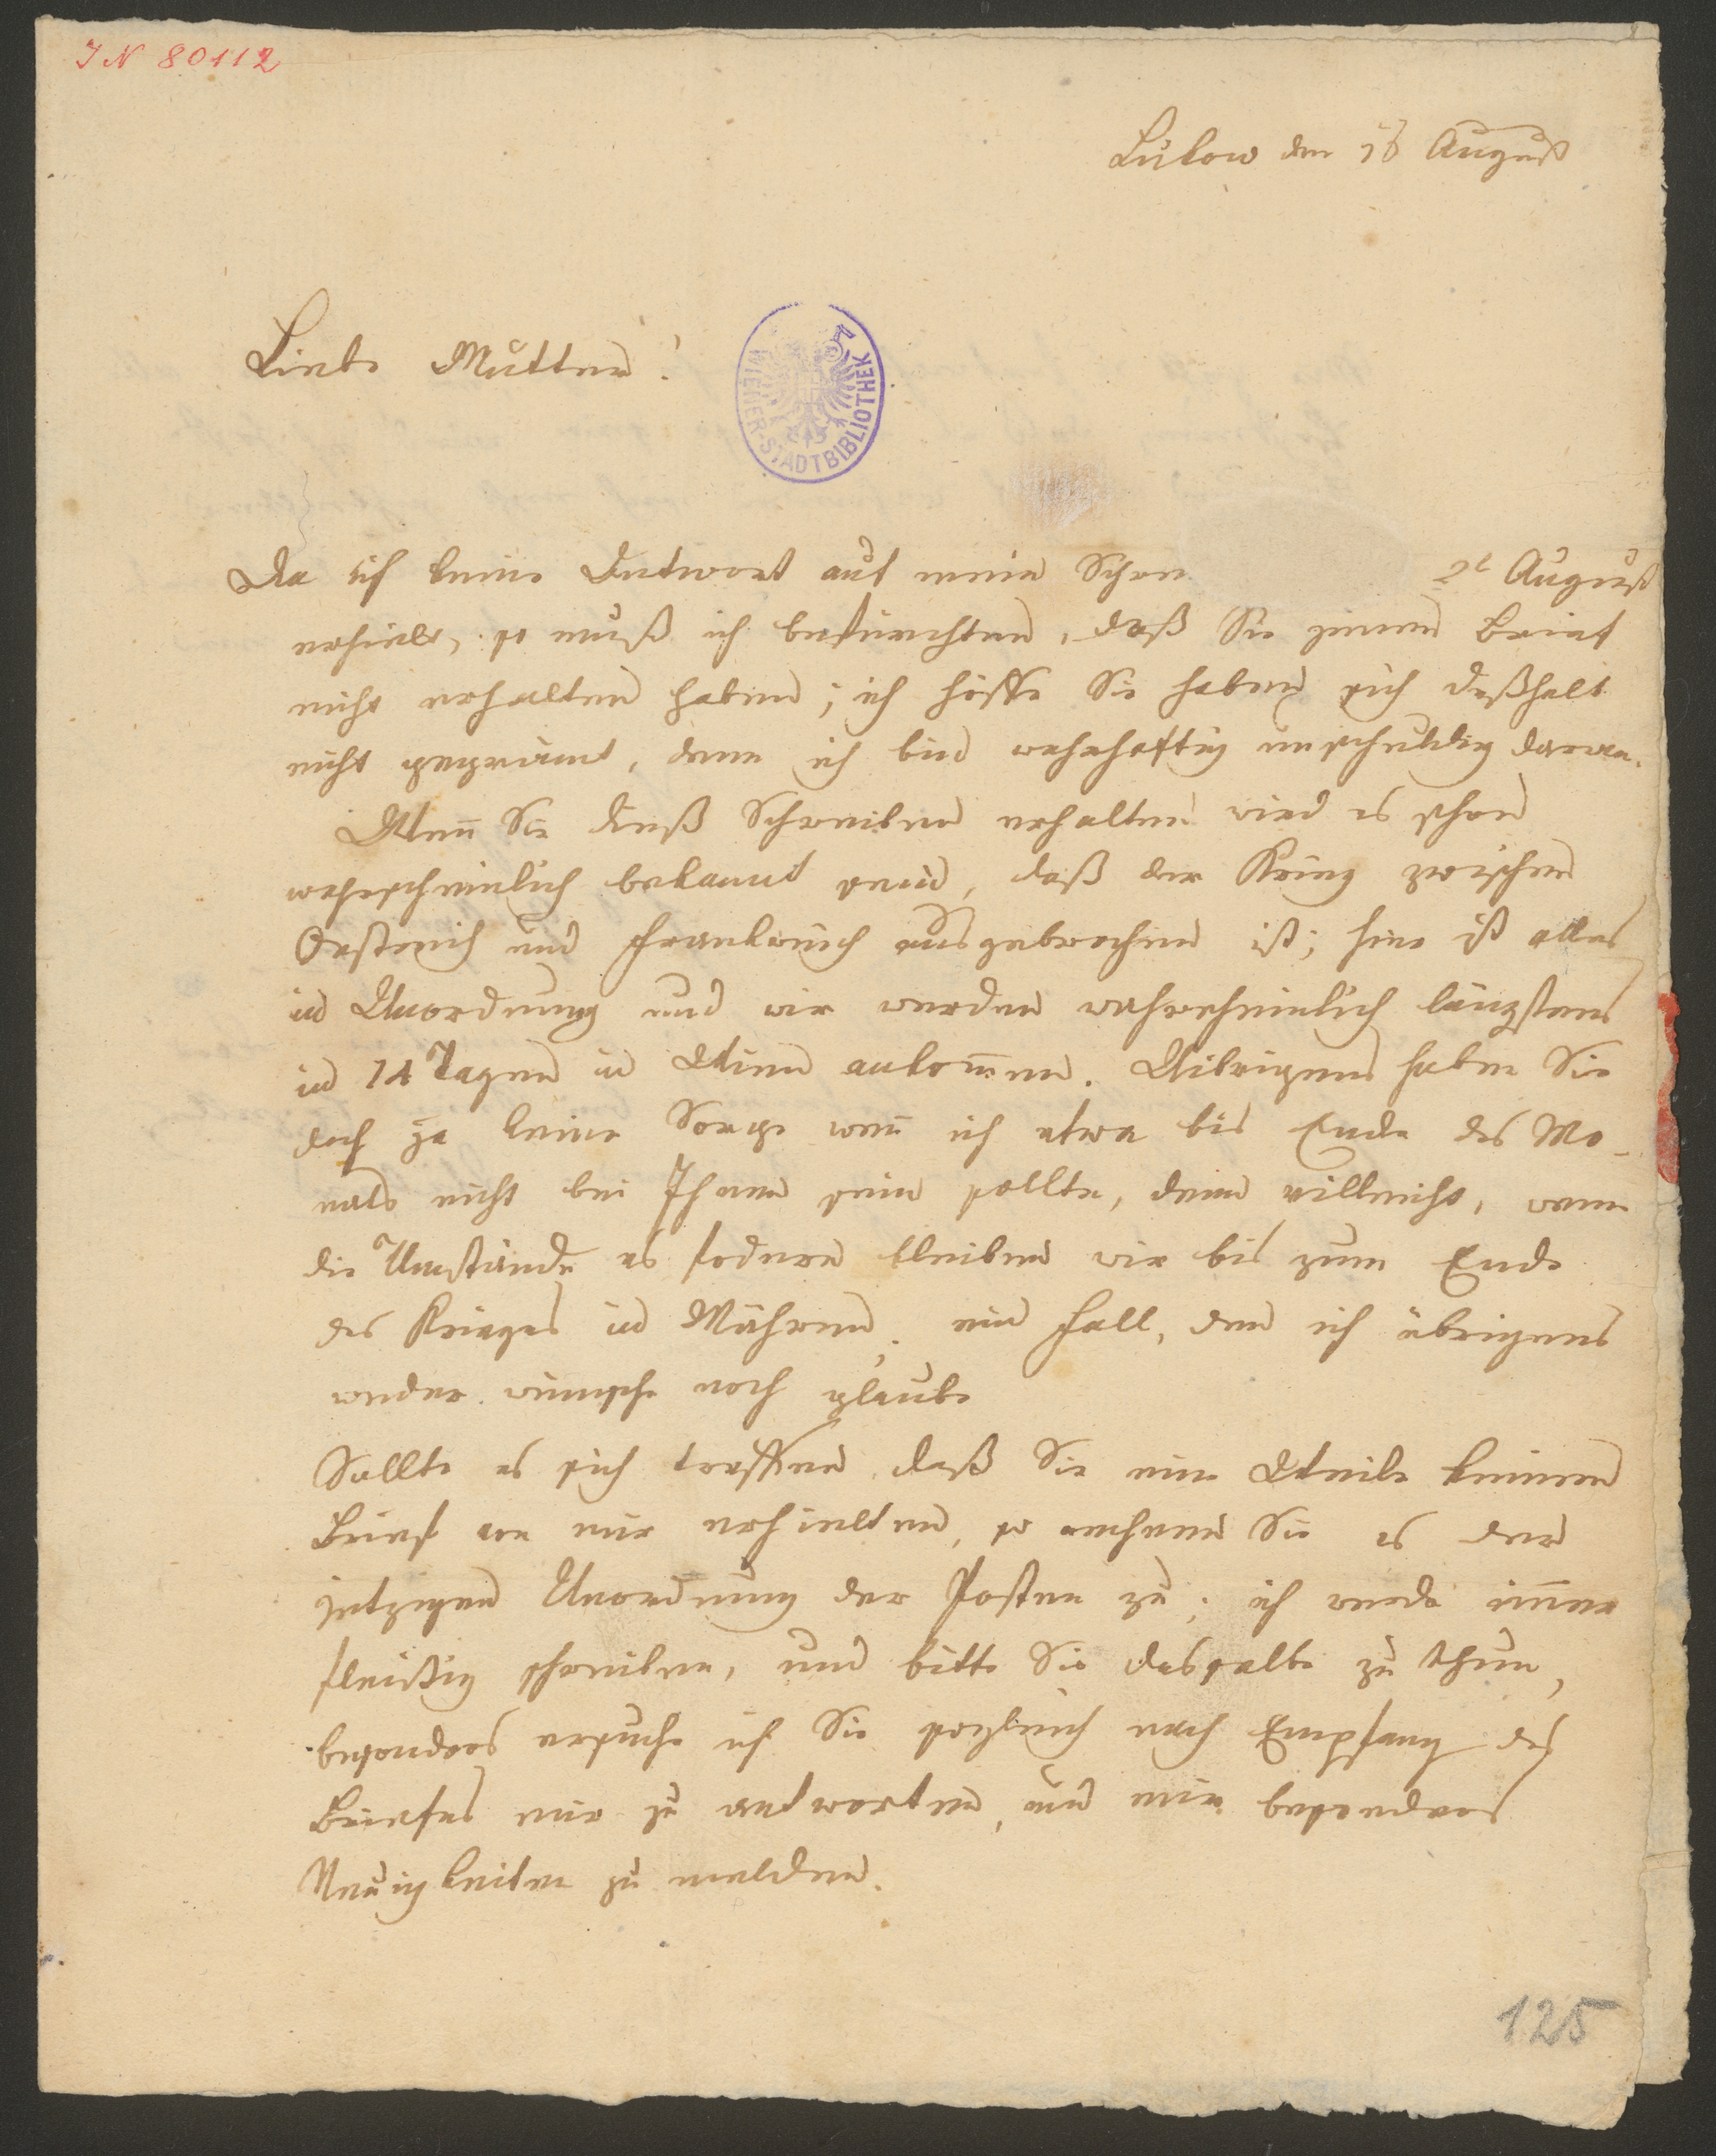 IN 80112
Lukow den 18 August
Liebe Mutter!
WIENER-STADTBIBLIOTHEK
Da ich keine Antwort auf mein Schrei 2t August
erhielt, so muß ich befürchten, daß Sie jenen Brief
nicht erhalten haben; ich hoffe Sie haben sich deßhalb
nicht gegrämt, denn ich bin wahrhaftig unschuldig daran.
Wenn Sie dieß Schreiben erhalten wird es schon
wahrscheinlich bekannt seyn, daß der Krieg zwischen
Oestreich und Frankreich ausgebrochen ist; hier ist alles
in Unordnung und wir werden wahrscheinlich längstens
in 14 Tagen in Wien ankommen. Uibrigens haben Sie
doch ja keine Sorge wenn ich etwa bis Ende des Mo-
nats nicht bei Ihnen sein sollte, denn villeicht, wenn
die Umstände es fodern bleiben wir bis zum Ende
des Krieges in Mähren, ein Fall, den ich übrigens
weder wünsche noch glaube
Sollte es sich treffen, daß Sie eine Weile keinen
Brief von mir erhielten, so rechnen Sie es der
jetzigen Unordnung der Posten zu; ich werde immer
fleißig schreiben, und bitte Sie dasselbe zu thun,
besonders ersuche ich Sie sogleich nach Empfang des
Briefes mir zu antworten, und mir besonders
Neuigkeiten zu melden.
125